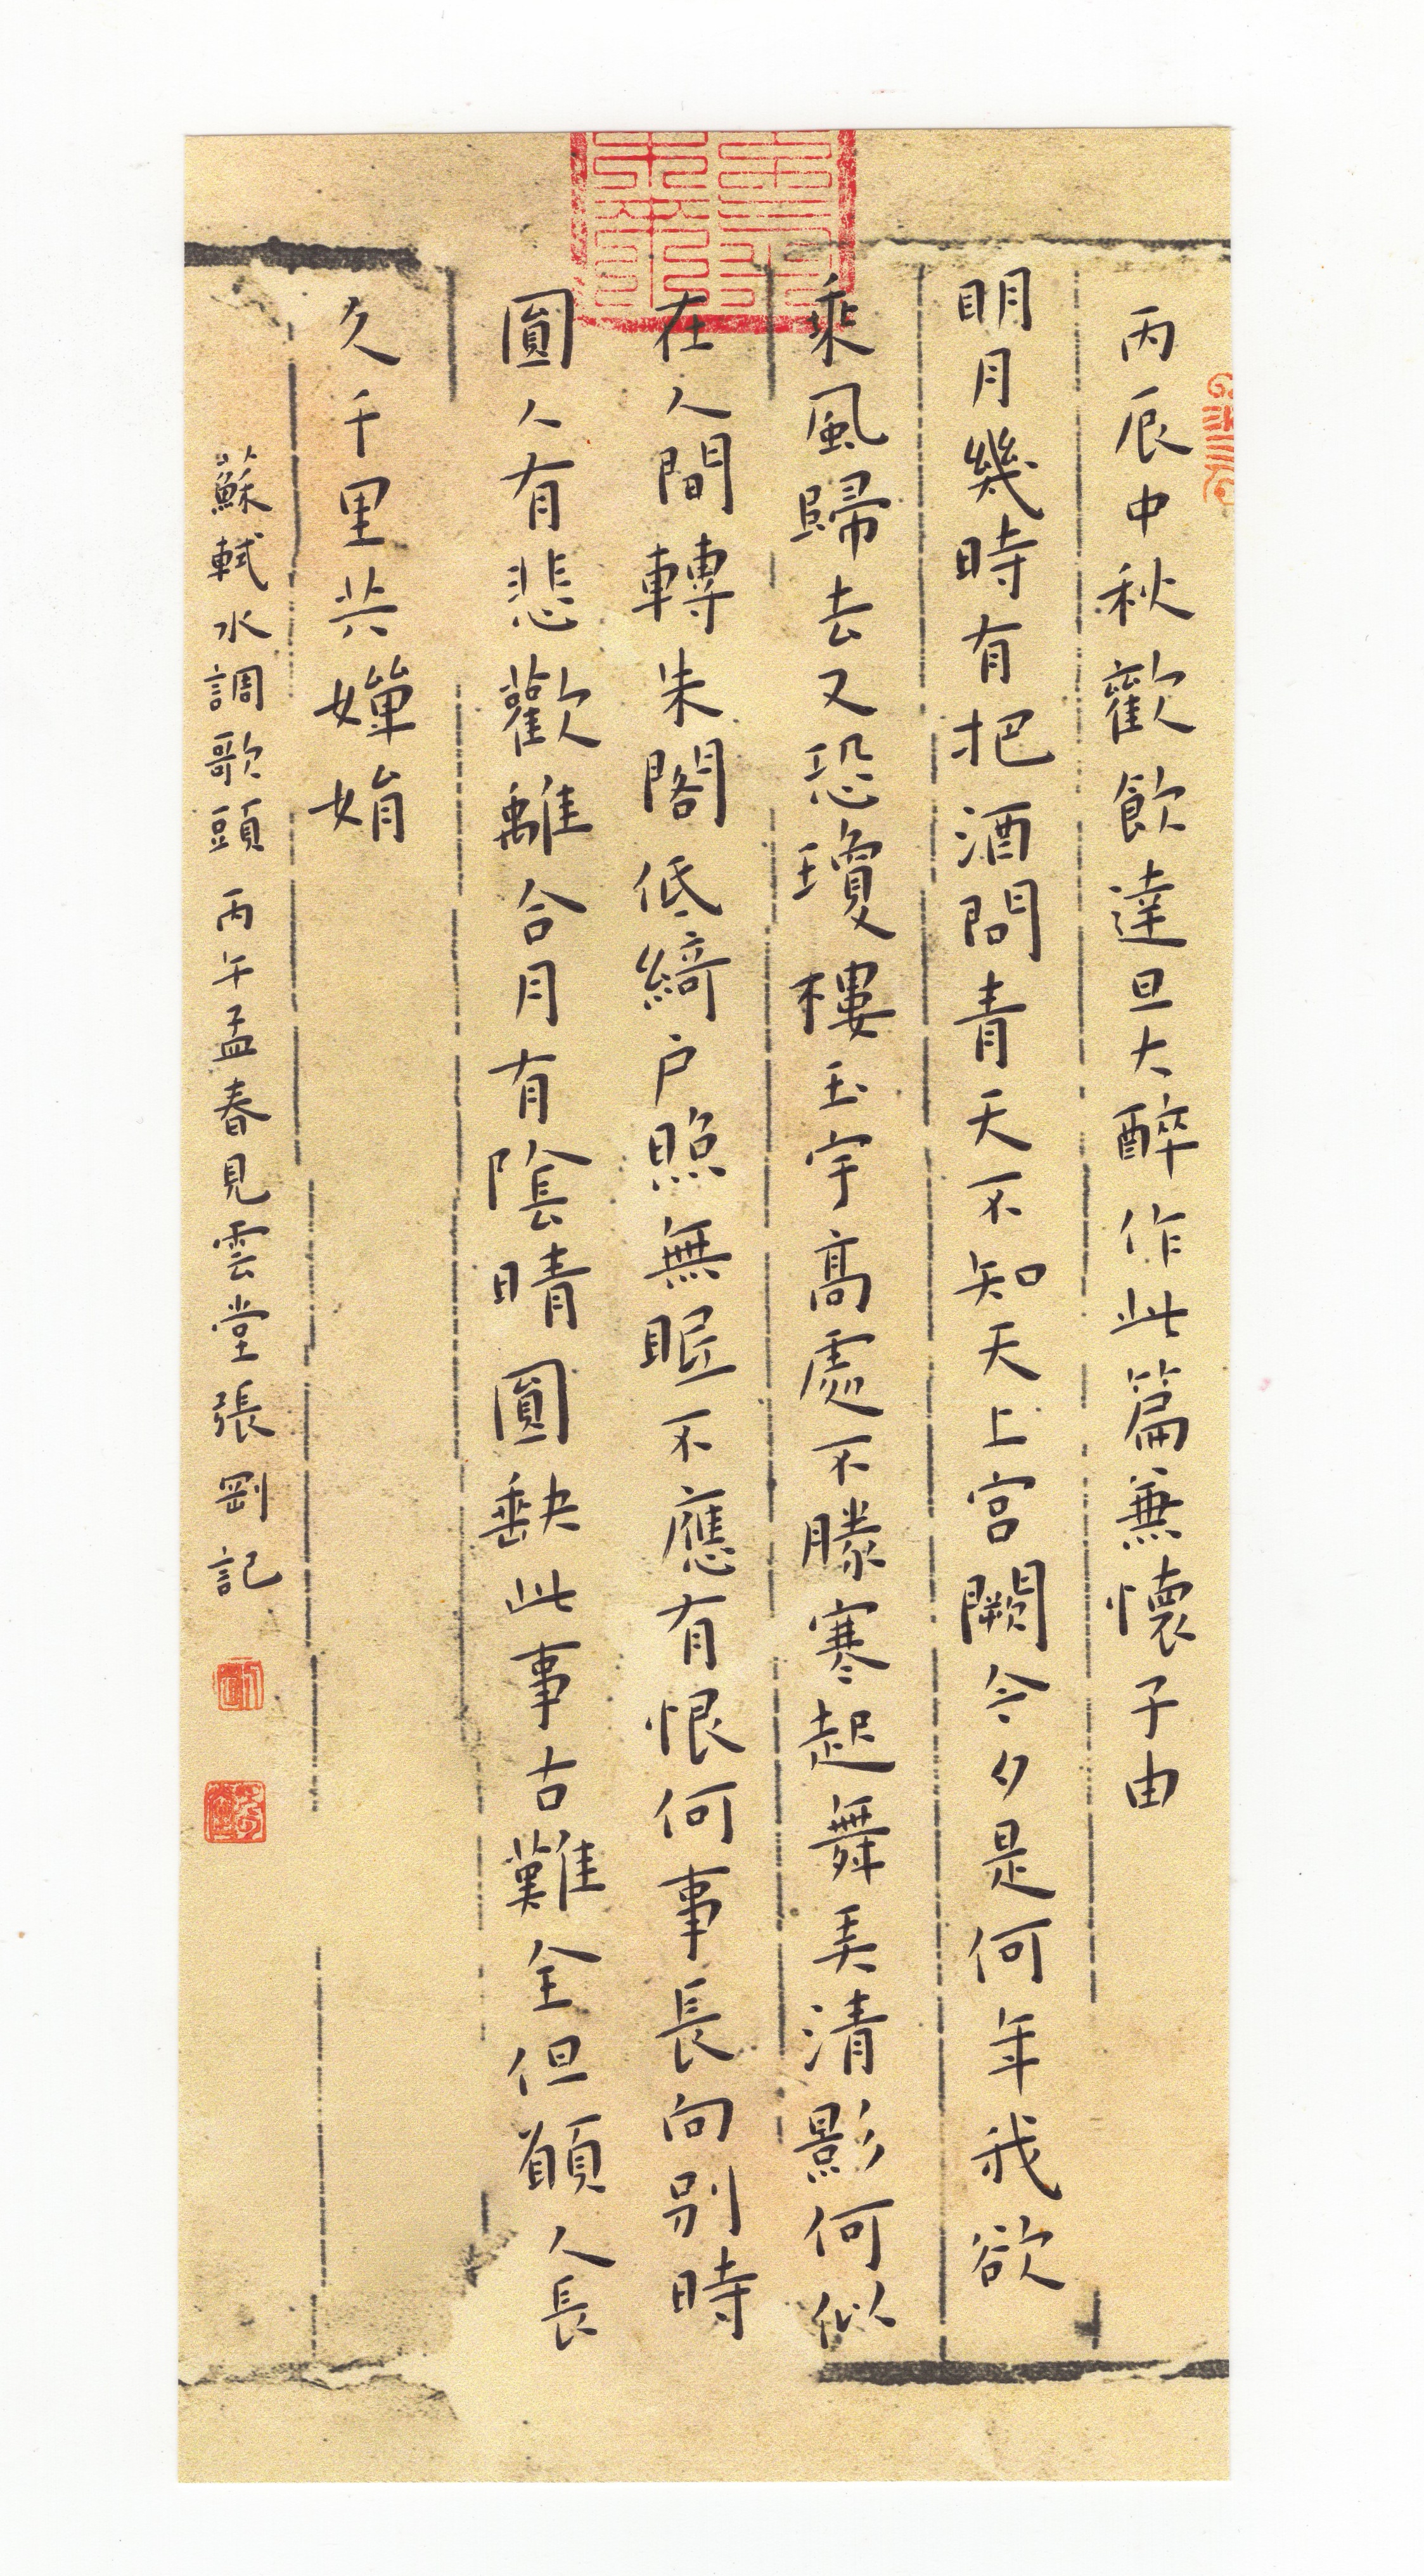 丙辰中秋歡飲達旦大醉作此篇兼懷子由
明月幾時有把酒問青天不知天上宮闕今夕是何年我欲
乘風歸去又恐瓊樓玉宇高處不勝寒起舞弄清影何似
在人間轉朱閣低綺户照無眠不應有恨何事長向別時
圓人有悲歡離合月有陰晴圓缺此事古難全但願人長
久千里共嬋娟
蘇軾水調歌頭丙午孟春見雲堂張剛記